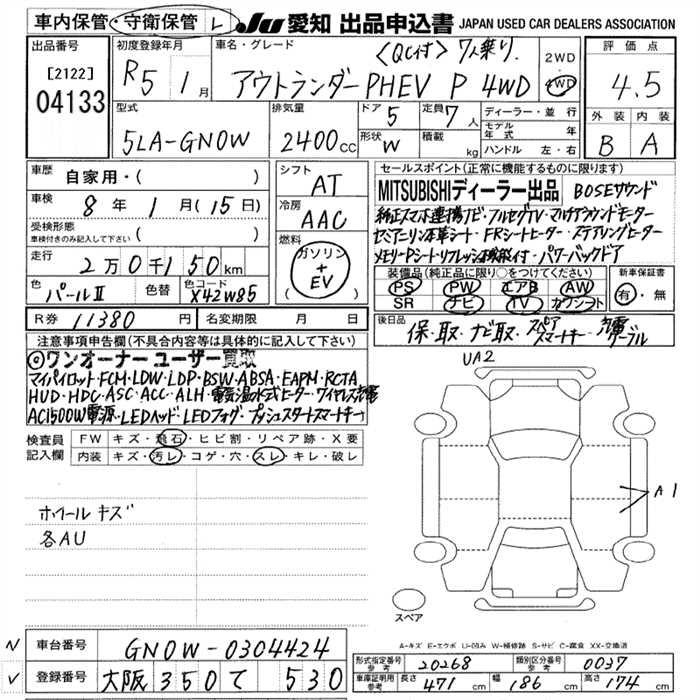 車内保管・守衛保管 L JU 愛知 出品申込書 JAPAN USED CAR DEALERS ASSOCIATION
出品番号 [2122] 04133
初度登録年月 R5 1月
車名・グレード 〈QC付〉 7人乗り
アウトランダーPHEV P 4WD
2WD 4WD
評価点 4.5
外装 内装 B A
型式 5LA-GN0W
排気量 2400cc
ドア 5 定員 7人
形状 W 積載 kg
ディーラー・並行
モデル年式 年
ハンドル 左・右
車歴 自家用・( )
車検 8年 1月(15日)
受検形態 車検付きのみ記入して下さい ( )
走行 2万0千150km
色 パールII 色替 色コード X42W85
シフト AT
冷房 AAC
燃料 ガソリン + EV
R券 11380円 名変期限 月 日
セールスポイント(正常に機能するものに限ります)
MITSUBISHIディーラー出品 BOSEサウンド
純正スマホ連携ナビ・フルセグTV・マルチアラウンドモニター
セミアニリン本革シート・FRシートヒーター・ステアリングヒーター
メモリーPシートリフレッシュ機能付・パワーバックドア
装備品(純正品に限り○をつけてください)
PS PW エアB AW
SR ナビ TV カワシート
新車保証書 有・無
後日品 保・取・ナビ取・スペアスマートキー・充電ケーブル
注意事項申告欄(不具合内容等は具体的に記入して下さい)
©ワンオーナー ユーザー買取
マイパイロット・FCM・LDW・LDP・BSW・ABSA・EAPM・RCTA
HUD・HDC・ASC・ACC・ALH・電気温水式ヒーター・ワイヤレス充電
AC1500W電源・LEDヘッド・LEDフォグ・プッシュスタートスマートキー
検査員記入欄
FW キズ・飛石・ヒビ割・リペア跡・X要
内装 キズ・汚レ・コゲ・穴・スレ・キレ・破レ
ホイールキズ
各AU
UA2
A1
スペア
A-キズ E-エクボ U-凹み W-補修跡 S-サビ C-腐食 XX-交換済
N 車台番号 GN0W-0304424
V 登録番号 大阪 350 て 530
形式指定番号 参考 20268 類別区分番号 参考 0037
車庫証明用 参考 長さ 471cm 幅 186cm 高さ 174cm